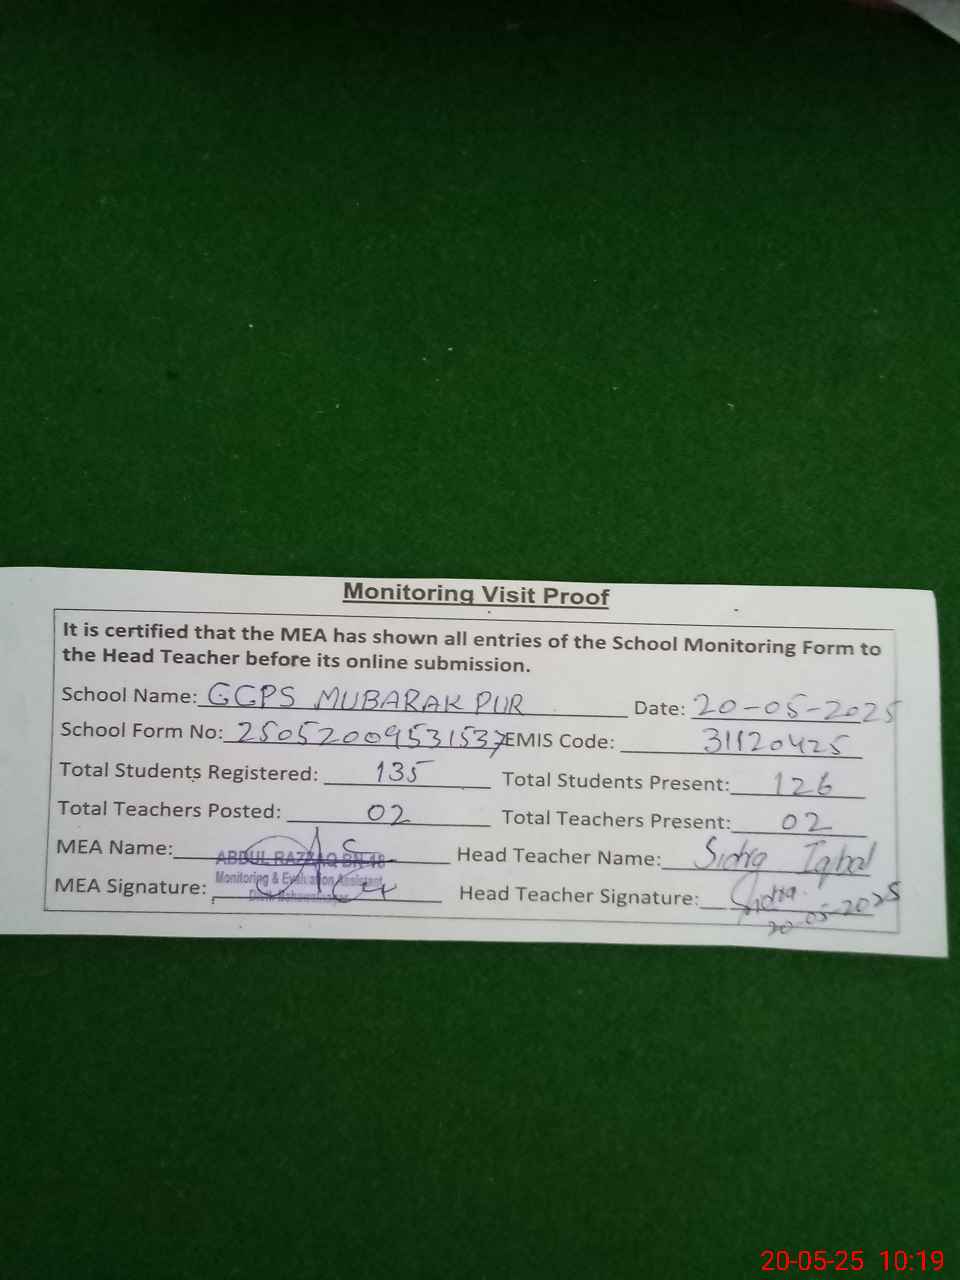 Monitoring Visit Proof
It is certified that the MEA has shown all entries of the School Monitoring Form to
the Head Teacher before its online submission.
School Name: GGPS MUBARAK PUR Date: 20-05-2025
School Form No: 25052009531537 EMIS Code: 31120425
Total Students Registered: 135 Total Students Present: 126
Total Teachers Posted: 02 Total Teachers Present: 02
MEA Name: ABDUL RAZZAQ BN-18 Head Teacher Name: Sidra Iqbal
Monitoring & Evaluation Assistant
MEA Signature: Head Teacher Signature: Sidra
20-05-2025
20-05-25 10:19